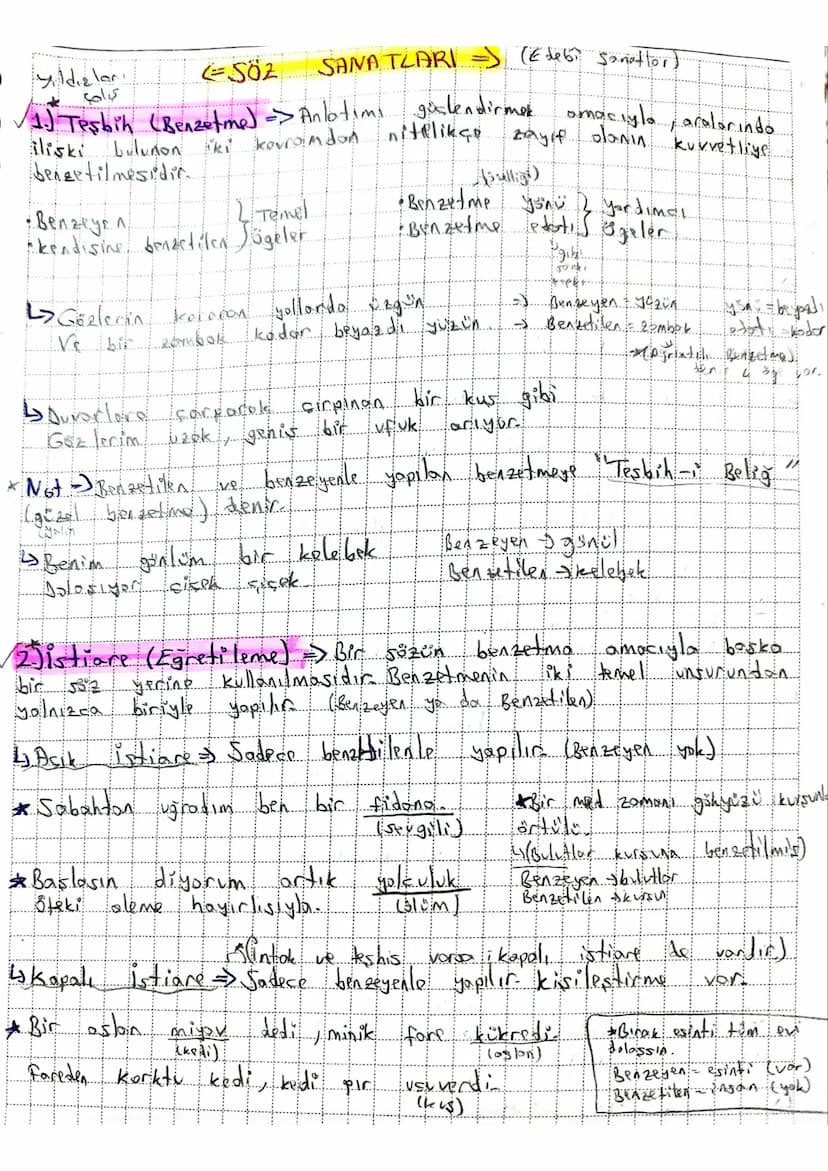 <= SÖZ SANATLARI => (Edebi Sanatlar)
yıldızları
çalış
1) Teşbih (Benzetme) => Anlatımı güçlendirmek amacıyla, aralarında
ilişki bulunan iki kavramdan nitelikçe zayıf olanın kuvvetliye
benzetilmesidir.
• Benzeyen
• kendisine benzetilen } Temel öğeler
• Benzetme yönü
• Benzetme edatı } yardımcı öğeler
gibi
sanki
↳ Gözlerin kararan yollarda üzgün => Benzeyen = yüzün yön = beyazlı
Ve bir zambak kadar beyazdı yüzün. → Benzetilen = zambak edatı = kadar
4 öğ var.
↳ Duvarlara çarparak çırpınan bir kuş gibi
Gözlerim uzak, geniş bir ufuk arıyor.
* Not → Benzetilen ve benzeyenle yapılan benzetmeye "Teşbih-i Beliğ"
(güzel benzetme) denir.
↳ Benim gönlüm bir kelebek Benzeyen → gönül
Dolaşıyor çiçek çiçek. Benzetilen → kelebek
2) istiare (Eğretileme) => Bir sözün benzetme amacıyla başka
bir söz yerine kullanılmasıdır. Benzetmenin iki temel unsurundan
yalnızca biriyle yapılır. (Benzeyen ya da Benzetilen)
↳ Açık istiare => Sadece benzetilenle yapılır. (Benzeyen yok)
* Sabahtan uğradım ben bir fidana.
(sevgili)
* Bir med zamanı gökyüzü kurşunla
örtülü.
↳ (Bulutlar kurşuna benzetilmiş)
Benzeyen → bulutlar
Benzetilen → kurşun
* Başlasın diyorum artık yolculuk
(ölüm)
Öteki aleme hayırlısıyla.
(İntak ve teşhis varsa kapalı istiare de vardır)
↳ Kapalı istiare => Sadece benzeyenle yapılır. kişileştirme var.
* Bir aslan miyav dedi, minik fare kükredi
(kedi) (aslan)
Fareden korktu kedi, kedi pır uçuverdi.
(kuş)
* Bırak esinti tüm evi
dolaşsın.
Benzeyen - esinti (var)
Benzetilen - insan (yok)